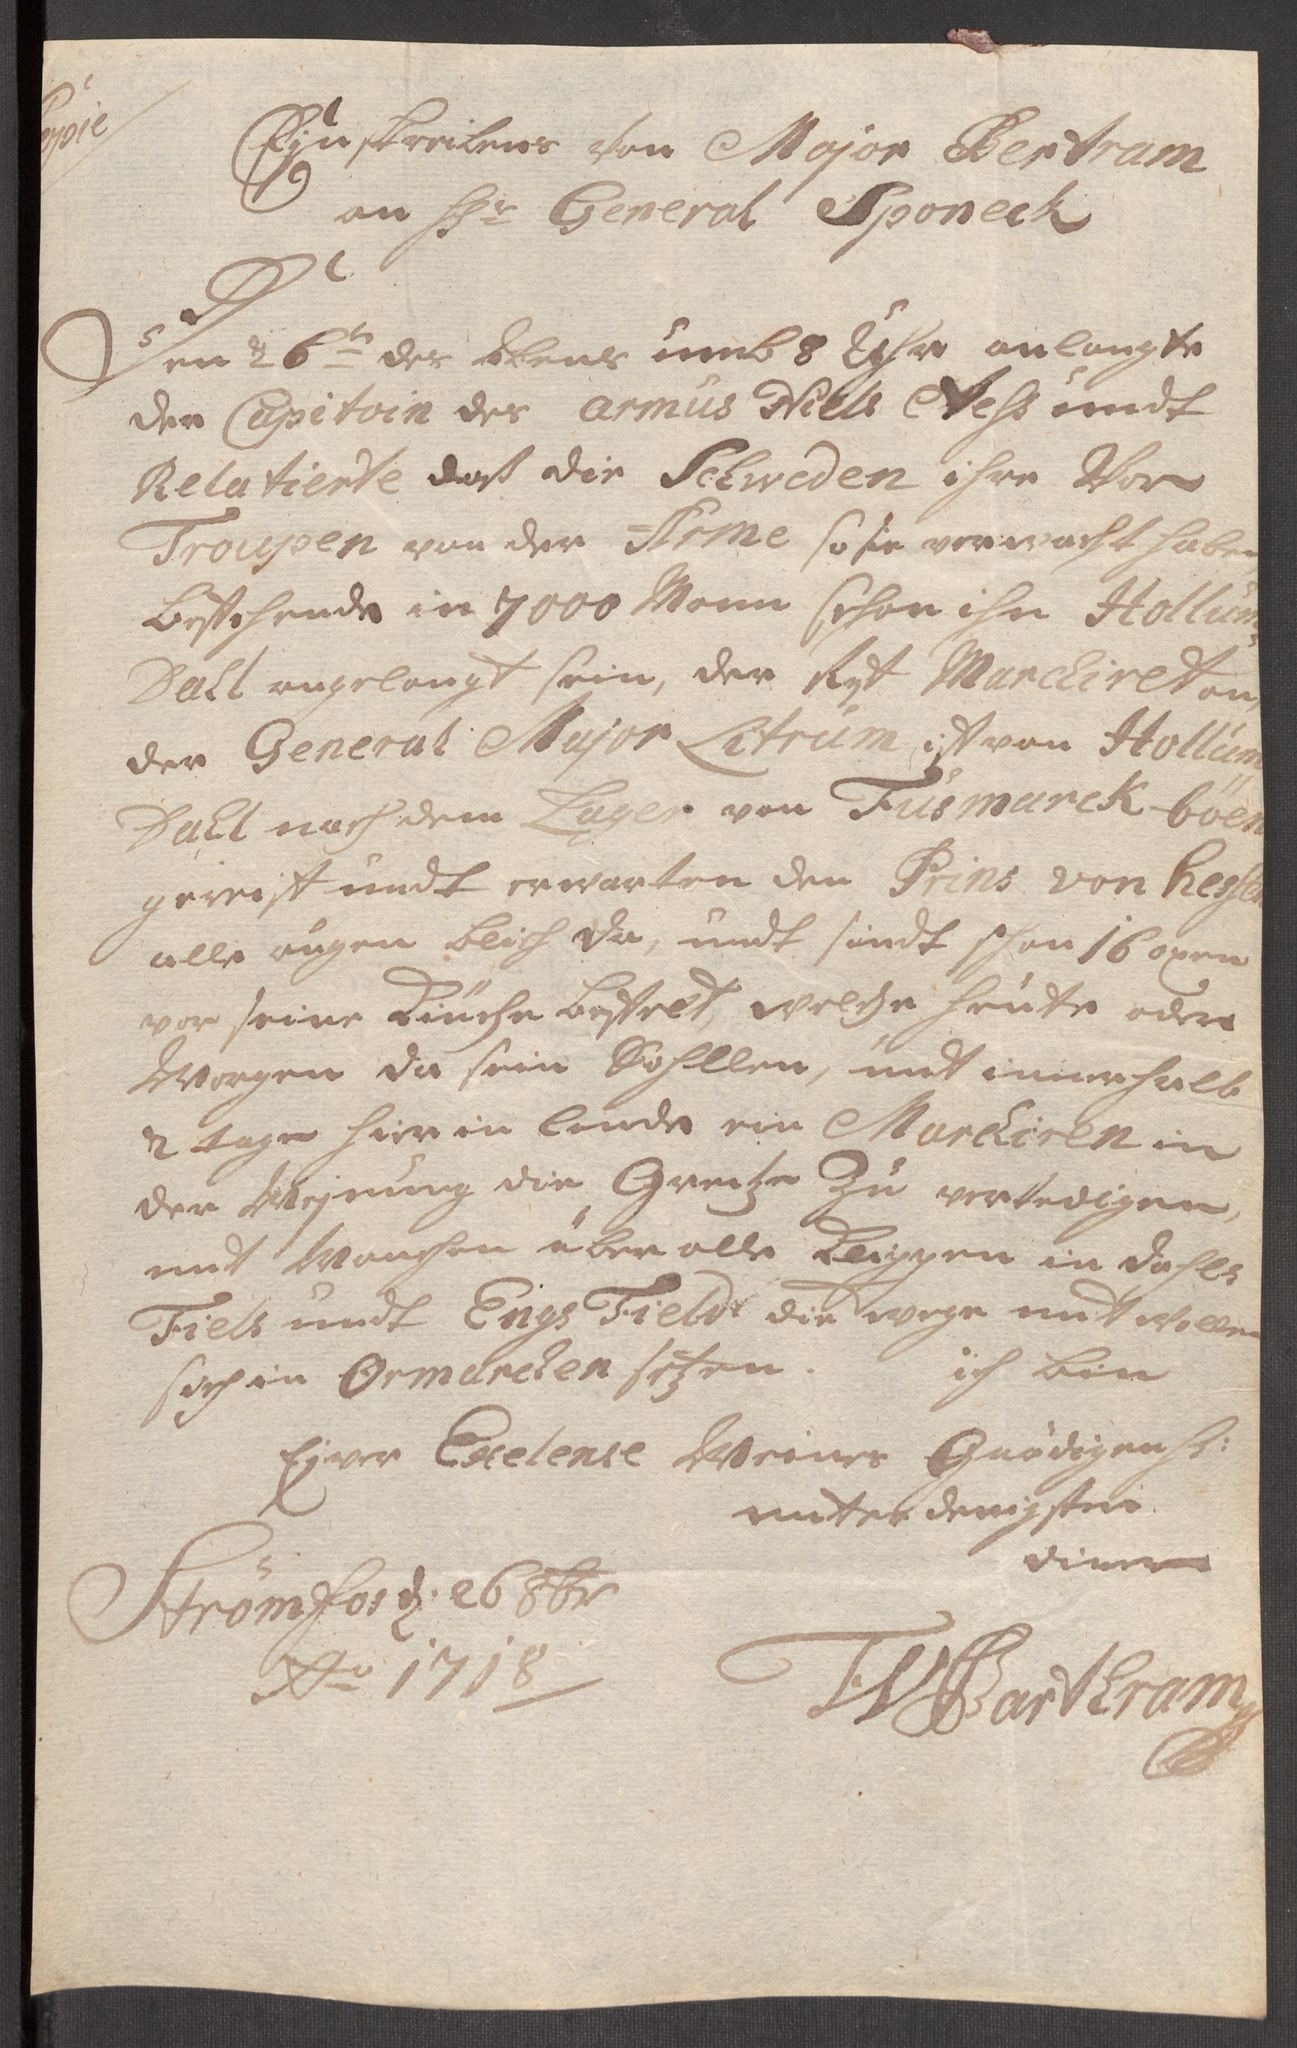 Copie
Einschreibens von Major Bertram
an Hr General Sponeck
Den 26tn des Abens umb 8 Uhr anlangte
der Capitain des armes Niels Ness undt
Relatierte daß die Schweden ihre Vor
Troupen von der Arme so sie verwacht haben
bestehende in 7000 Mann schon ihn Hollum
Dahl angelangt sein, der Rest Marchiret an,
der General Major Letrum ist von Hollum
Dahl nach dem Lager von Fusmarck-böen
gereist undt erwarten den Prins von Hessen
alle augen blick da, undt sindt schon 16 oxen
vor seine Küche bestelt, welche heute oder
Morgen da sein Sohllen, und innerhalb
2 tage hier in lande ein Marchiren in
der Mejnung die Grentze Zu vertedigen,
mit Wachen über alle Klippen in Dahls
Fiels undt Engs Field die wege und wollen
sich in Ormarchen setzen. ich bin
Ejver Exelense Meines Gnädigen H:
unterdenigster
diener
Strömfos d. 26 8br
Ao 1718
TW Barthram